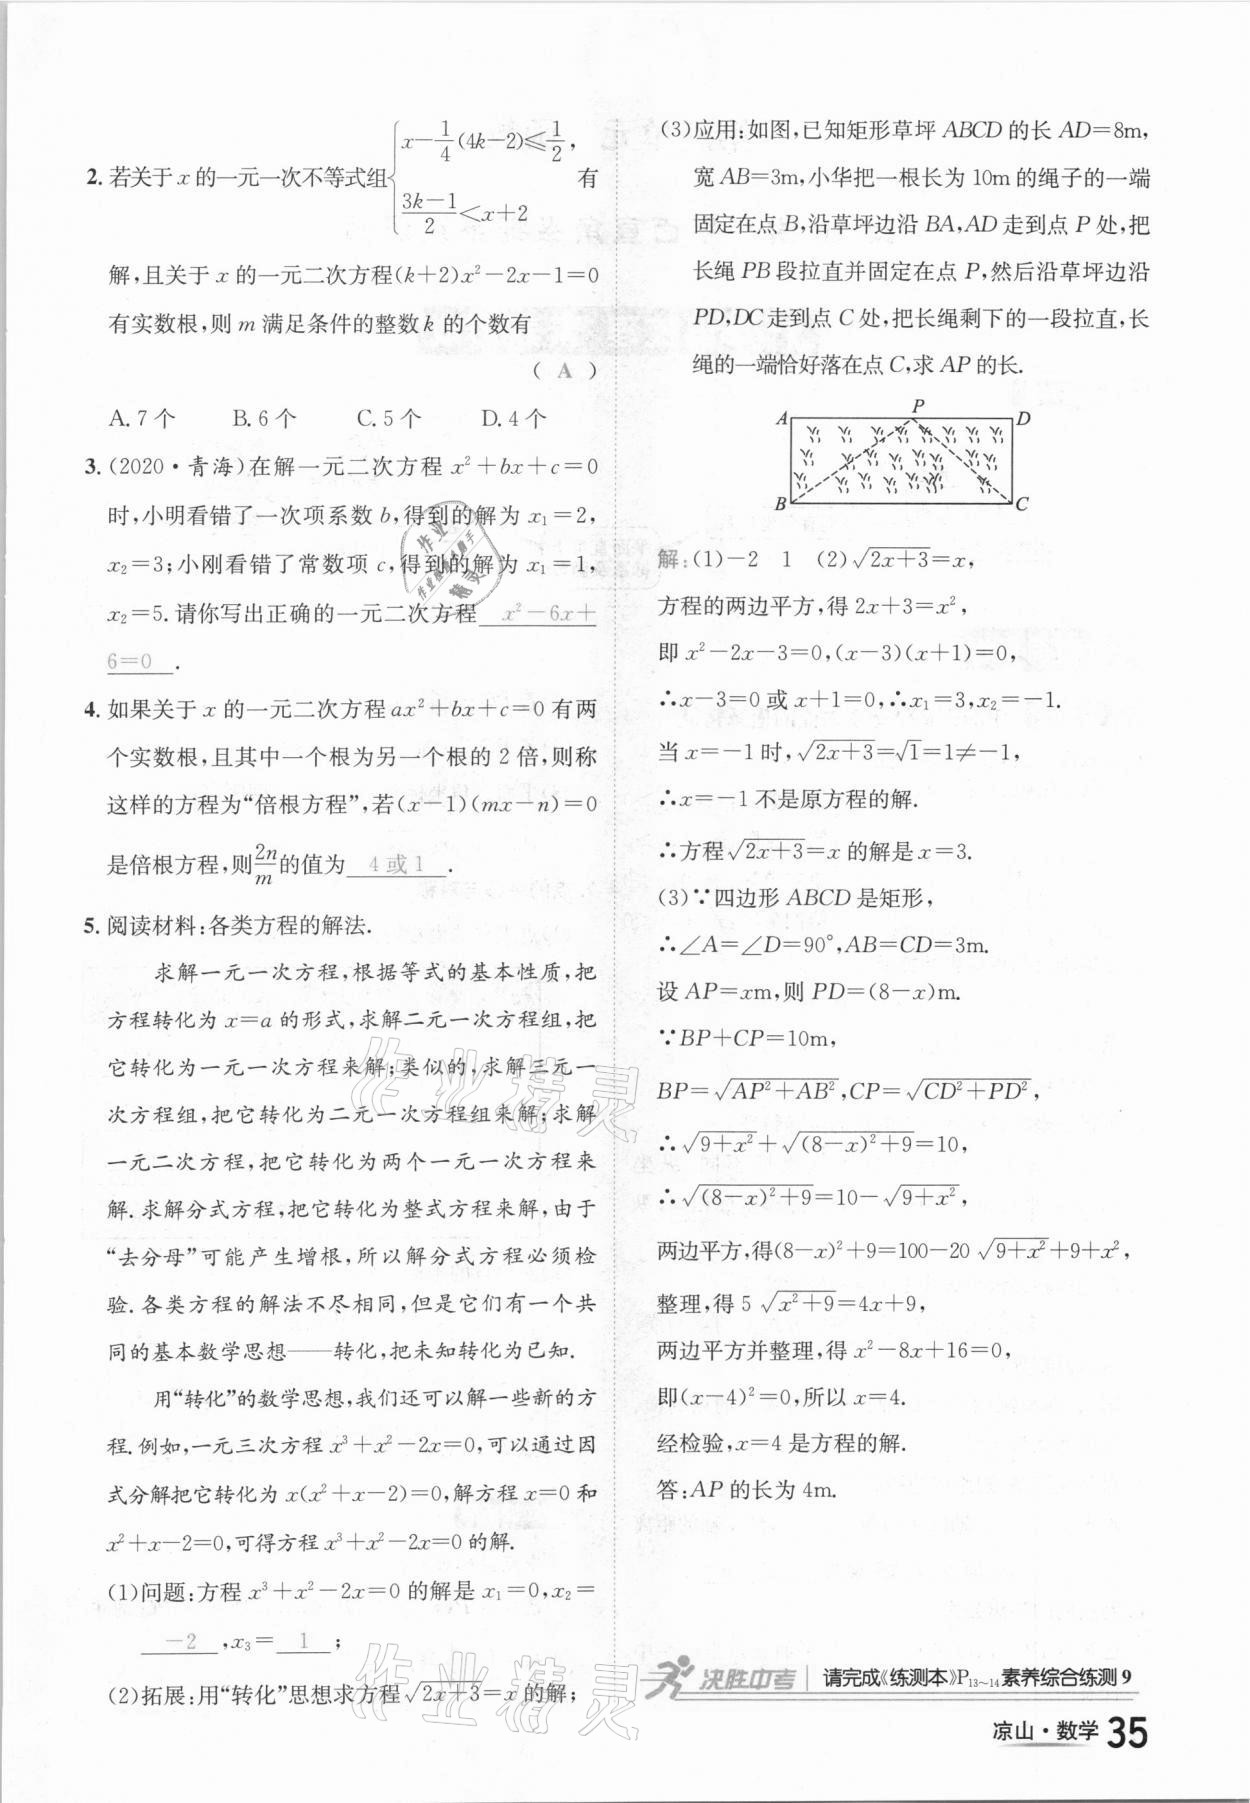 2. 若关于 x 的一元一次不等式组{x−1/4(4k−2)≤1/2, (3k−1)/2<x+2 有
解,且关于 x 的一元二次方程(k+2)x²−2x−1=0
有实数根,则 m 满足条件的整数 k 的个数有
( A )
A. 7 个 B. 6 个 C. 5 个 D. 4 个
3. (2020·青海)在解一元二次方程 x²+bx+c=0
时,小明看错了一次项系数 b,得到的解为 x₁=2,
x₂=3;小刚看错了常数项 c,得到的解为 x₁=1,
x₂=5. 请你写出正确的一元二次方程 x²−6x+
6=0 .
4. 如果关于 x 的一元二次方程 ax²+bx+c=0 有两
个实数根,且其中一个根为另一个根的 2 倍,则称
这样的方程为“倍根方程”,若(x−1)(mx−n)=0
是倍根方程,则2n/m的值为 4 或 1 .
5. 阅读材料:各类方程的解法.
求解一元一次方程,根据等式的基本性质,把
方程转化为 x=a 的形式,求解二元一次方程组,把
它转化为一元一次方程来解;类似的,求解三元一
次方程组,把它转化为二元一次方程组来解;求解
一元二次方程,把它转化为两个一元一次方程来
解. 求解分式方程,把它转化为整式方程来解,由于
“去分母”可能产生增根,所以解分式方程必须检
验. 各类方程的解法不尽相同,但是它们有一个共
同的基本数学思想——转化,把未知转化为已知.
用“转化”的数学思想,我们还可以解一些新的方
程. 例如,一元三次方程 x³+x²−2x=0,可以通过因
式分解把它转化为 x(x²+x−2)=0,解方程 x=0 和
x²+x−2=0,可得方程 x³+x²−2x=0 的解.
(1)问题:方程 x³+x²−2x=0 的解是 x₁=0,x₂=
−2 ,x₃= 1 ;
(2)拓展:用“转化”思想求方程√(2x+3)=x 的解;
(3)应用:如图,已知矩形草坪 ABCD 的长 AD=8m,
宽 AB=3m,小华把一根长为 10m 的绳子的一端
固定在点 B,沿草坪边沿 BA,AD 走到点 P 处,把
长绳 PB 段拉直并固定在点 P,然后沿草坪边沿
PD,DC 走到点 C 处,把长绳剩下的一段拉直,长
绳的一端恰好落在点 C,求 AP 的长.
A P D
B C
解:(1)−2 1 (2)√(2x+3)=x,
方程的两边平方,得 2x+3=x²,
即 x²−2x−3=0,(x−3)(x+1)=0,
∴x−3=0 或 x+1=0,∴x₁=3,x₂=−1.
当 x=−1 时,√(2x+3)=√1=1≠−1,
∴x=−1 不是原方程的解.
∴方程√(2x+3)=x 的解是 x=3.
(3)∵四边形 ABCD 是矩形,
∴∠A=∠D=90°,AB=CD=3m.
设 AP=xm,则 PD=(8−x)m.
∵BP+CP=10m,
BP=√(AP²+AB²),CP=√(CD²+PD²),
∴√(9+x²)+√((8−x)²+9)=10,
∴√((8−x)²+9)=10−√(9+x²),
两边平方,得(8−x)²+9=100−20√(9+x²)+9+x²,
整理,得 5√(x²+9)=4x+9,
两边平方并整理,得 x²−8x+16=0,
即(x−4)²=0,所以 x=4.
经检验,x=4 是方程的解.
答:AP 的长为 4m.
决胜中考 请完成《练测本》P₁₃~₁₄素养综合练测 9
凉山·数学 35
作业精灵
作业精灵